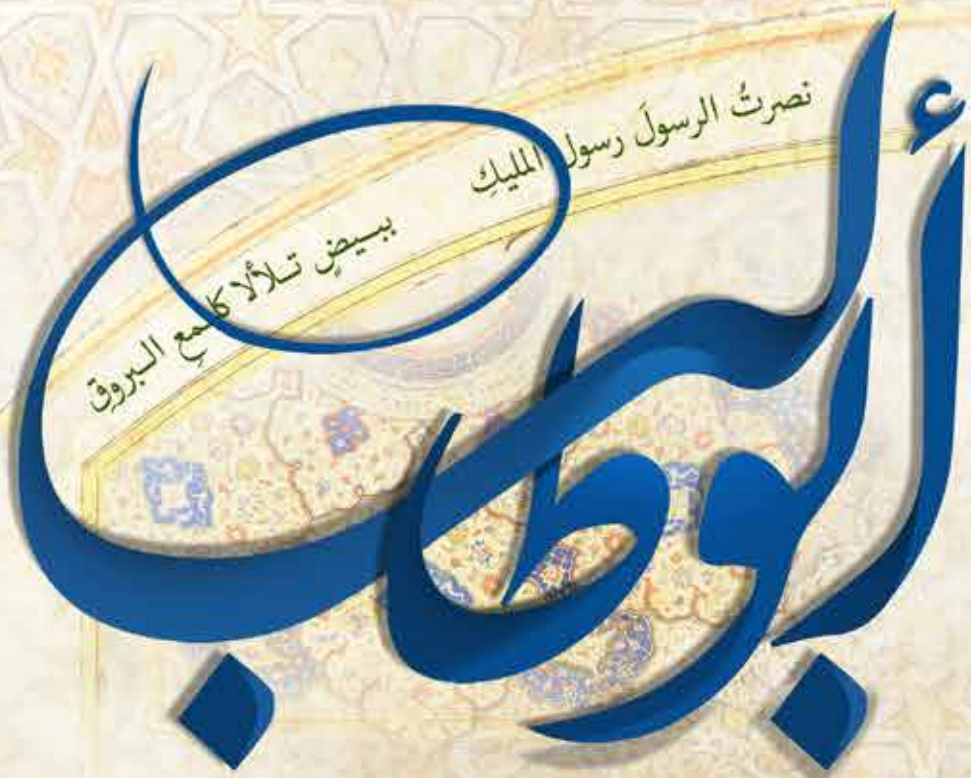 نصرتُ الرسولَ رسول المليكِ
ببيضٍ تلألا كلمعِ البروقِ
أبوطالب